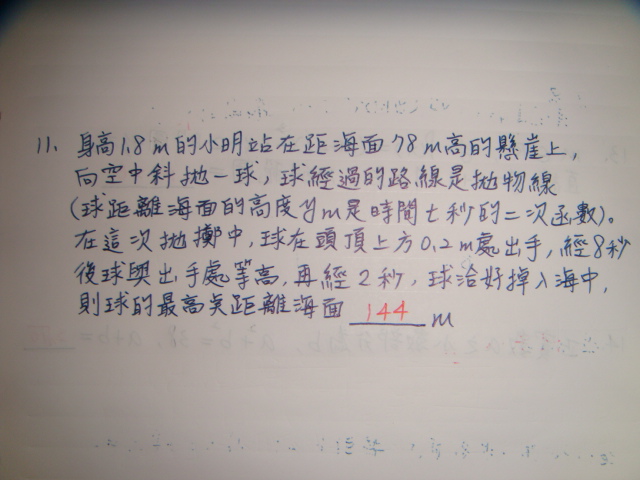 11. 身高1.8m的小明站在距海面78m高的懸崖上,
向空中斜拋一球,球經過的路線是拋物線
(球距離海面的高度ym是時間t秒的二次函數)。
在這次拋擲中,球在頭頂上方0.2m處出手,經8秒
後球與出手處等高,再經2秒,球洽好掉入海中,
則球的最高點距離海面 144 m